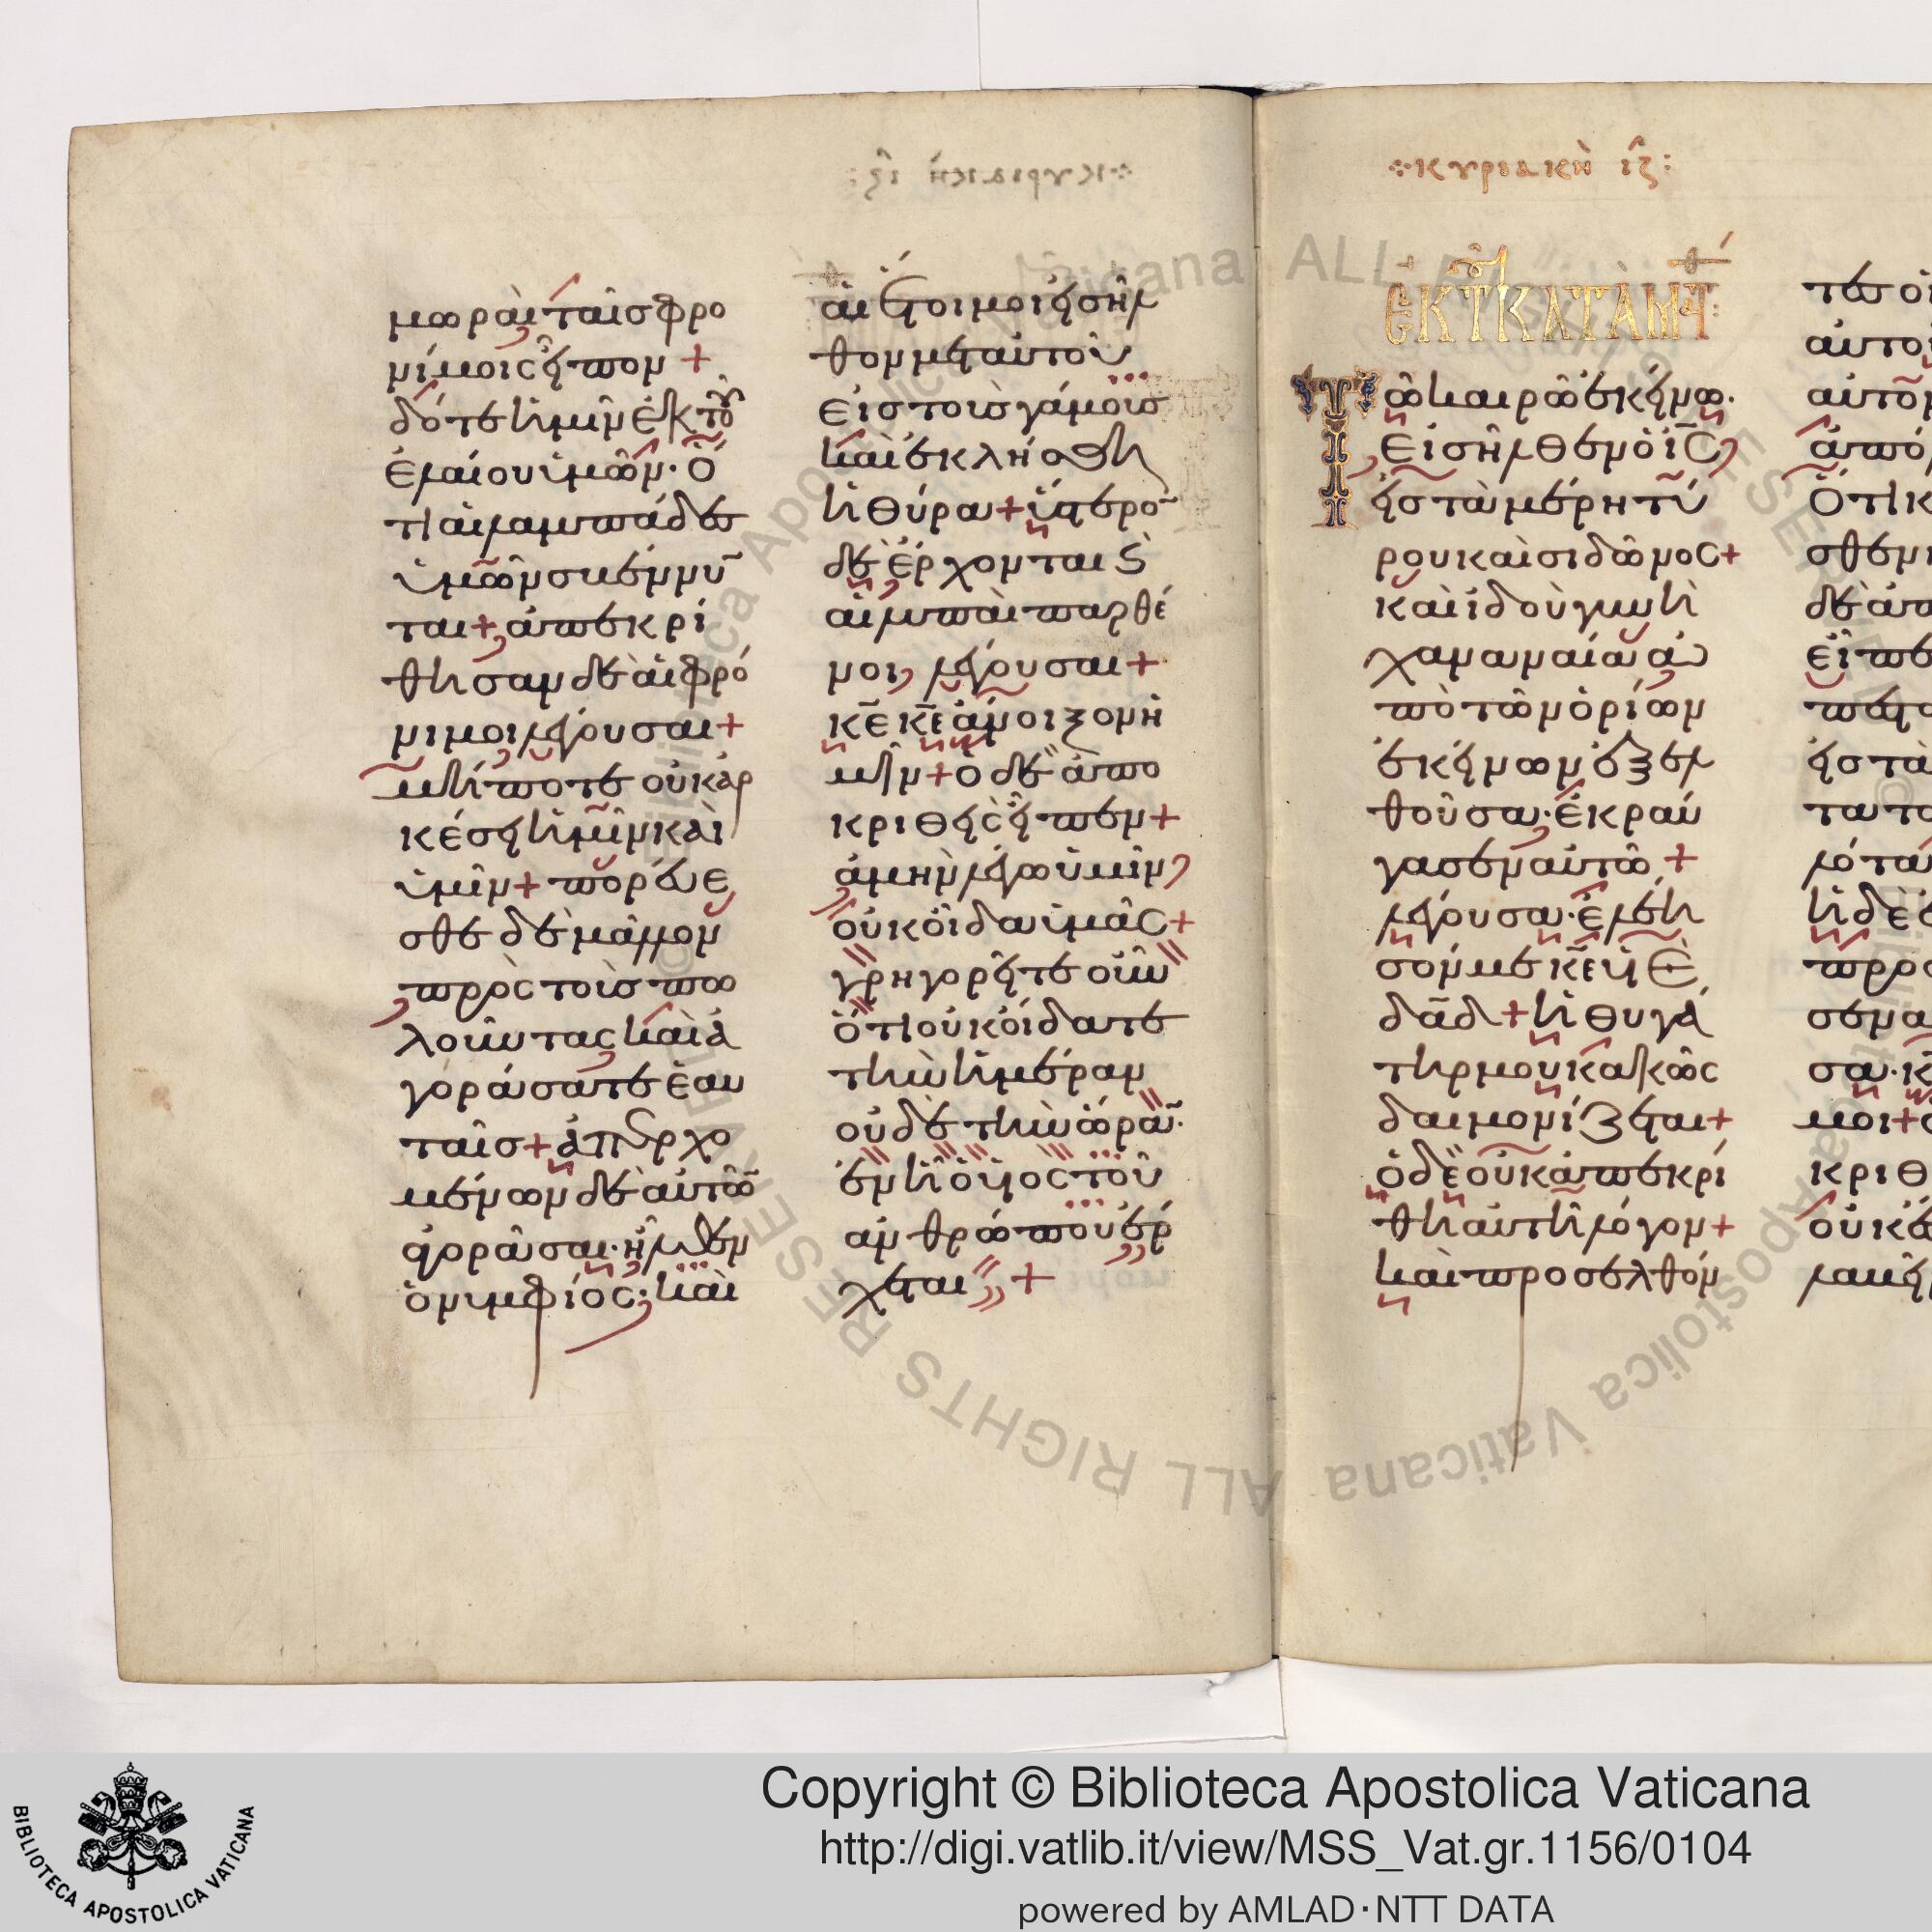 μωραὶ ταῖς φρο
νίμοις εἶπον +
δότε ἡμῖν ἐκ τοῦ
ἐλαίου ὑμῶν· ὅ
τι αἱ λαμπάδες
ὑμῶν σβέννυν
ται + ἀπεκρί
θησαν δὲ αἱ φρό
νιμοι λέγουσαι +
μήποτε οὐκ ἀρ
κέσει ἡμῖν καὶ
ὑμῖν + πορεύε
σθε δὲ μᾶλλον
πρὸς τοὺς πω
λοῦντας καὶ ἀ
γοράσατε ἑαυ
ταῖς + ἀπερχο
μένων δὲ αὐτῶν
ἀγορᾶσαι· ἦλθεν
ὁ νυμφίος· καὶ
αἱ ἕτοιμοι εἰσῆλ
θον μετ' αὐτοῦ
εἰς τοὺς γάμους
καὶ ἐκλείσθη
ἡ θύρα + ὕστερον
δὲ ἔρχονται ϛ
αἱ λοιπαὶ παρθέ
νοι, λέγουσαι +
κε κε ἄνοιξον ἡ
μῖν + ὁ δὲ ἀπο
κριθεὶς εἶπεν +
ἀμὴν λέγω ὑμῖν
οὐκ οἶδα ὑμᾶς +
γρηγορεῖτε οὖν
ὅτι οὐκ οἴδατε
τὴν ἡμέραν
οὐδὲ τὴν ὥραν·
ἐν ᾗ ὁ υἱὸς τοῦ
ἀνθρώπου ἔρ
χεται +
κυριακὴ ιζ:
ἐκ τ κατὰ Μτ
Τῶ καιρῶ ἐκείνω·
εἰσῆλθεν ὁ ις
εἰς τὰ μέρη τύ
ρου καὶ σιδῶνος +
καὶ ἰδοὺ γυνὴ
χαναναία ἀ
πὸ τῶν ὁρίων
ἐκείνων ἐξελ
θοῦσα· ἐκραύ
γασεν αὐτῶ +
λέγουσα· ἐλέη
σόν με κε υἱὲ
δαδ + ἡ θυγά
τηρ μου κακῶς
δαιμονίζεται +
ὁ δὲ οὐκ ἀπεκρί
θη αὐτῆ λόγον +
καὶ προσελθόν
Copyright © Biblioteca Apostolica Vaticana
http://digi.vatlib.it/view/MSS_Vat.gr.1156/0104
powered by AMLAD·NTT DATA
BIBLIOTECA APOSTOLICA VATICANA